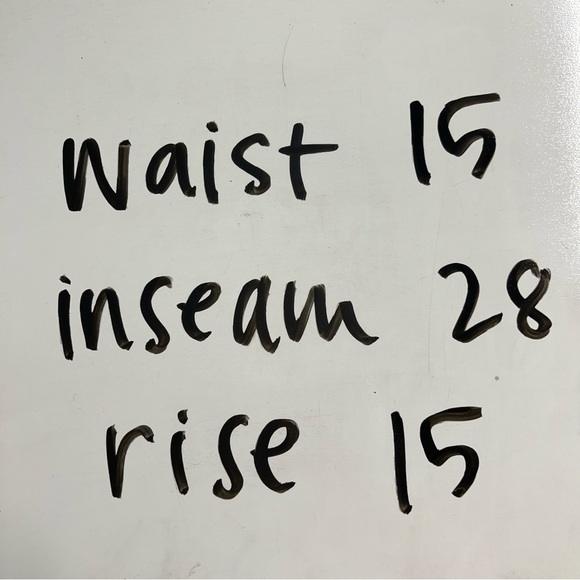 waist 15
inseam 28
rise 15